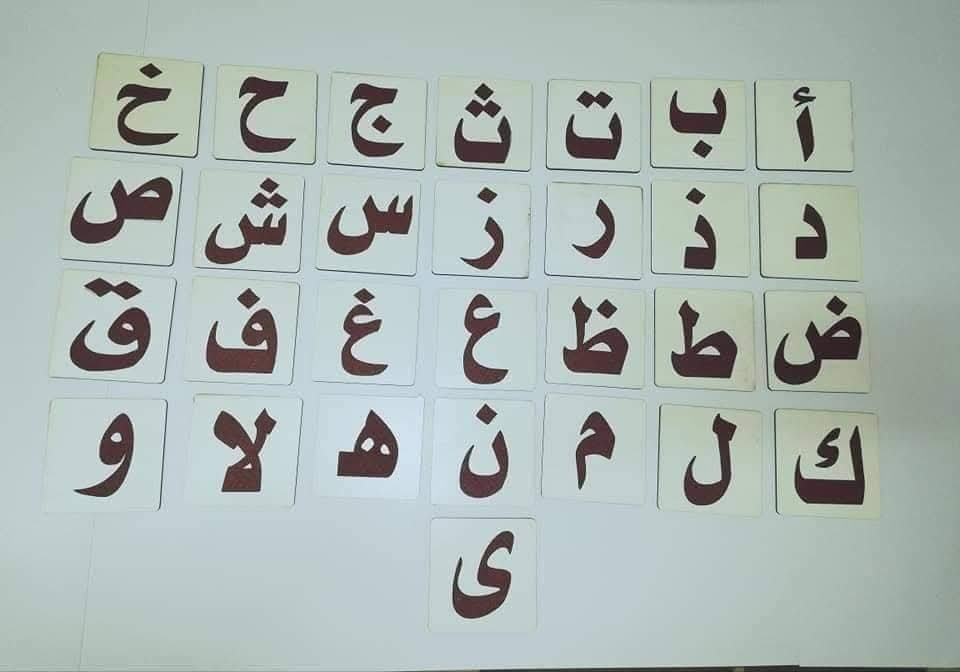 أ ب ت ث ج ح خ
د ذ ر ز س ش ص
ض ط ظ ع غ ف ق
ك ل م ن ه لا و
ى